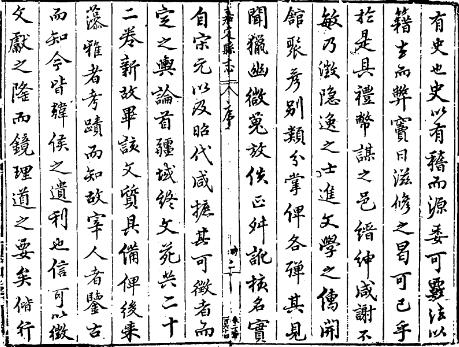 有史也史以有藉而源委可覈法以
籍去而弊竇日滋脩之曷可已乎
於是具禮幣謀之邑縉紳咸謝不
敏乃徵隱逸之士進文學之儔開
館聚彥別類分輩俾各殫其見
聞獵幽微蒐放佚正舛訛核名實
嘉定縣志 序
自宋元以及昭代咸摭其可徵者而
定之輿論首疆域終文苑共二十
二卷新故畢該文質具備俾後來
藻雅者考蹟而知故宰人者鑒古
而知今皆韓侯之遺利也信可以徵
文獻之隆而鏡理道之要矣偕行